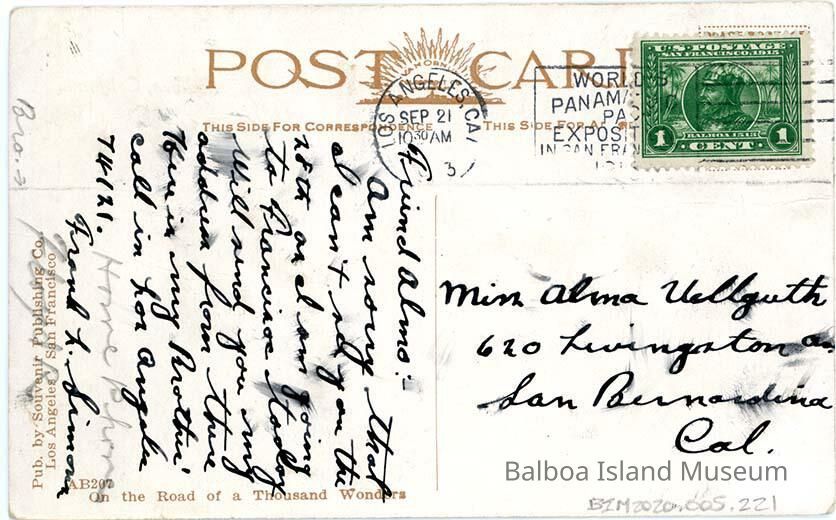 POST CARD
THIS SIDE FOR CORRESPONDENCE
THIS SIDE FOR
LOS ANGELES, CAL
SEP 21
10 30 AM
WORLD'S
PANAMA
PAC
EXPOSIT
IN SAN FRAN
U.S. POSTAGE
SAN FRANCISCO, 1915
BALBOA 1513
1 CENT 1
Friend Alma:-
Am sorry that
I can't see you the
28th as I am going
to Francisco today
Will send you my
address from there
Here is my Brothers
call in Los Angeles
74121.
Frank L. Simons
Home Phone
Bro.s
Miss Alma Vellguth
620 Livingston
San Bernardino
Cal.
Pub. by Souvenir Publishing Co.
Los Angeles San Francisco
AB207
On the Road of a Thousand Wonders
Balboa Island Museum
BIM2020.005.221